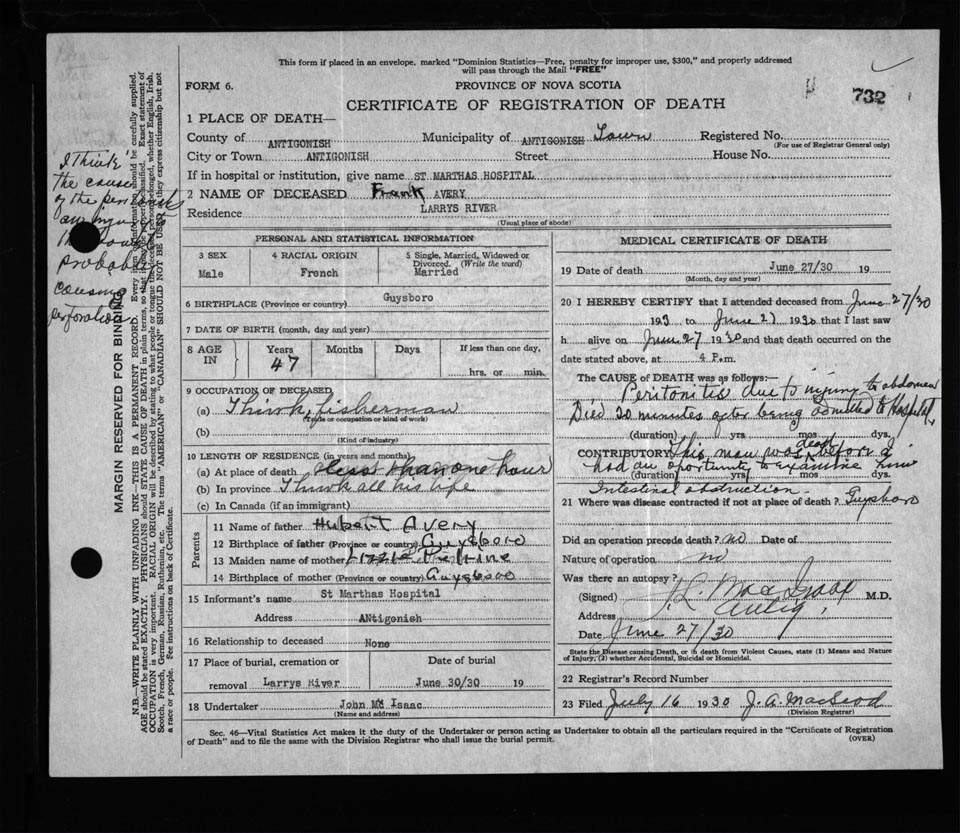 This form if placed in an envelope, marked "Dominion Statistics—Free, penalty for improper use, $300," and properly addressed
will pass through the Mail "FREE"
FORM 6.
PROVINCE OF NOVA SCOTIA
732
CERTIFICATE OF REGISTRATION OF DEATH
1 PLACE OF DEATH—
County of ANTIGONISH Municipality of ANTIGONISH Town Registered No.
(For use of Registrar General only)
City or Town ANTIGONISH Street House No.
If in hospital or institution, give name ST MARTHAS HOSPITAL
2 NAME OF DECEASED Frank AVERY
Residence LARRYS RIVER
(Usual place of abode)
PERSONAL AND STATISTICAL INFORMATION
3 SEX 4 RACIAL ORIGIN 5 Single, Married, Widowed or
Divorced. (Write the word)
Male French Married
6 BIRTHPLACE (Province or country) Guysboro
7 DATE OF BIRTH (month, day and year)
8 AGE IN Years Months Days If less than one day,
47 hrs. or min.
9 OCCUPATION OF DECEASED
(a) I think, fisherman
(Trade or occupation or kind of work)
(b)
(Kind of industry)
10 LENGTH OF RESIDENCE (in years and months)
(a) At place of death less than one hour
(b) In province I think all his life
(c) In Canada (if an immigrant)
Parents
11 Name of father Hubert Avery
12 Birthplace of father (Province or country) Guysboro
13 Maiden name of mother Lizzie
14 Birthplace of mother (Province or country) Guysboro
15 Informant's name St Marthas Hospital
Address ANtigonish
16 Relationship to deceased None
17 Place of burial, cremation or Date of burial
removal Larrys River June 30/30 19
18 Undertaker John Mc Isaac
(Name and address)
MEDICAL CERTIFICATE OF DEATH
19 Date of death June 27/30 19
(Month, day and year)
20 I HEREBY CERTIFY that I attended deceased from June 27/30
193 to June 27 1930 that I last saw
h alive on June 27 1930 and that death occurred on the
date stated above, at 4 P.m.
The CAUSE OF DEATH was as follows:—
Peritonites due to injury to abdomen
Died 20 minutes after being admitted to Hospital
(duration) yrs mos dys.
CONTRIBUTORY This man was dead before I
had an oportunity to examine him
(duration) yrs mos dys.
Intestinal obstruction.
21 Where was disease contracted if not at place of death? Guysboro
Did an operation precede death? no Date of
Nature of operation no
Was there an autopsy?
(Signed) M.D.
Address Antig.
Date June 27/30
State the Disease causing Death, or in death from Violent Causes, state (1) Means and Nature
of Injury, (2) whether Accidental, Suicidal or Homicidal.
22 Registrar's Record Number
23 Filed July 16 1930 J. A. MacLeod
(Division Registrar)
Sec. 46—Vital Statistics Act makes it the duty of the Undertaker or person acting as Undertaker to obtain all the particulars required in the "Certificate of Registration
of Death" and to file the same with the Division Registrar who shall issue the burial permit.
(OVER)
I think
the cause
of the
probably
causing
perforation
MARGIN RESERVED FOR BINDING
N.B.—WRITE PLAINLY WITH UNFADING INK—THIS IS A PERMANENT RECORD. Every item of information should be carefully supplied.
AGE should be stated EXACTLY. PHYSICIANS should STATE CAUSE OF DEATH in plain terms, so that it may be properly classified. Exact statement of
OCCUPATION is very important. RACIAL ORIGIN will be described by stating to what people or tongue the deceased person belonged, whether English, Irish,
Scotch, French, German, Russian, Ruthenian, etc. The terms "AMERICAN" or "CANADIAN" SHOULD NOT BE USED as they express citizenship but not
a race or people. See instructions on back of Certificate.